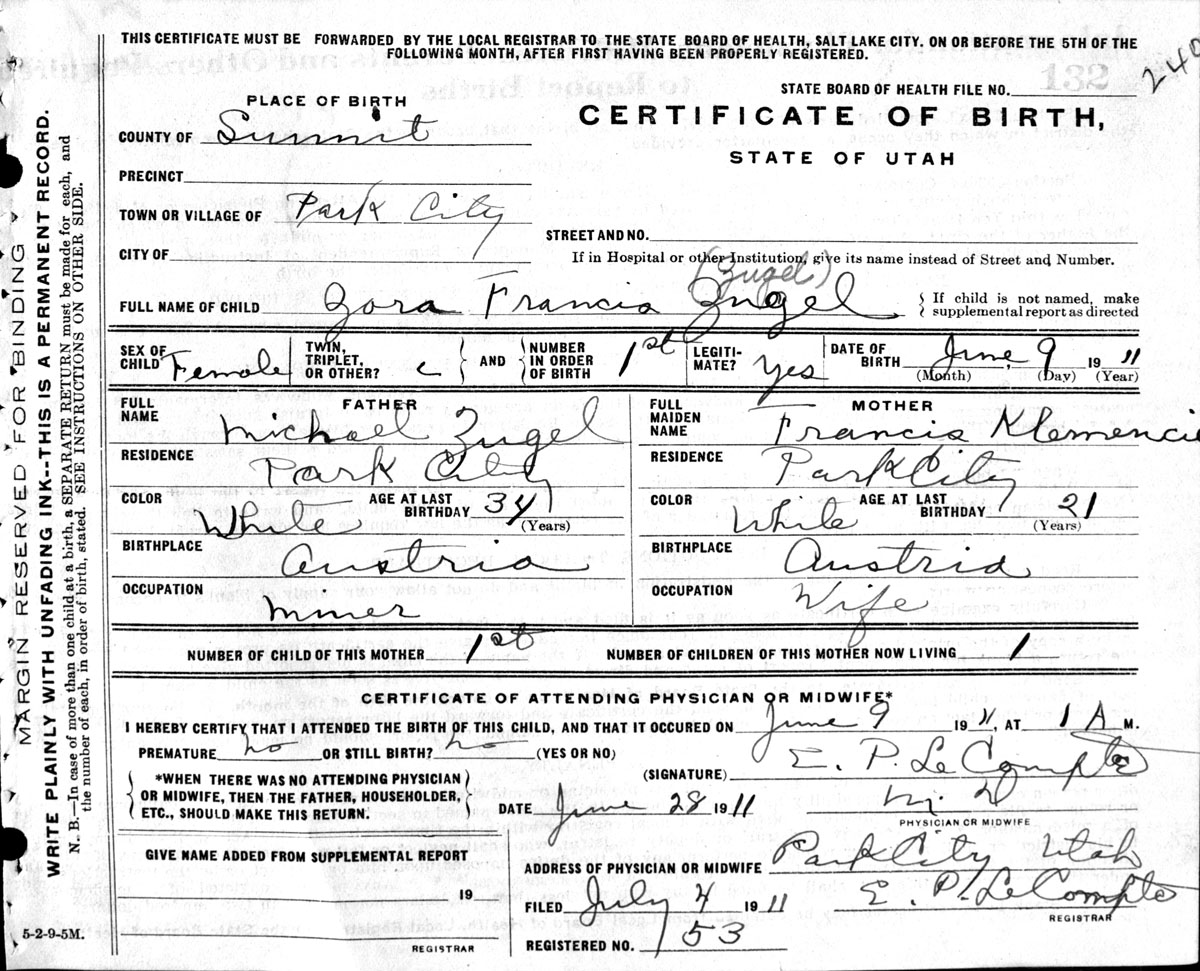 THIS CERTIFICATE MUST BE FORWARDED BY THE LOCAL REGISTRAR TO THE STATE BOARD OF HEALTH, SALT LAKE CITY, ON OR BEFORE THE 5TH OF THE
FOLLOWING MONTH, AFTER FIRST HAVING BEEN PROPERLY REGISTERED.
240
STATE BOARD OF HEALTH FILE NO. 132
PLACE OF BIRTH
CERTIFICATE OF BIRTH,
STATE OF UTAH
COUNTY OF Summit
PRECINCT
TOWN OR VILLAGE OF Park City
STREET AND NO.
CITY OF
If in Hospital or other Institution, give its name instead of Street and Number.
(Zugel)
FULL NAME OF CHILD Zora Francis Zugel { If child is not named, make
supplemental report as directed
SEX OF CHILD Female TWIN, TRIPLET, OR OTHER? AND NUMBER IN ORDER OF BIRTH 1st LEGITI- MATE? Yes DATE OF BIRTH June 9, 1911
(Month) (Day) (Year)
FATHER
FULL NAME Michael Zugel
RESIDENCE Park City
COLOR White AGE AT LAST BIRTHDAY 34 (Years)
BIRTHPLACE Austria
OCCUPATION Miner
MOTHER
FULL MAIDEN NAME Francis Klemencic
RESIDENCE Park City
COLOR White AGE AT LAST BIRTHDAY 21 (Years)
BIRTHPLACE Austria
OCCUPATION Wife
NUMBER OF CHILD OF THIS MOTHER 1st NUMBER OF CHILDREN OF THIS MOTHER NOW LIVING 1
CERTIFICATE OF ATTENDING PHYSICIAN OR MIDWIFE*
I HEREBY CERTIFY THAT I ATTENDED THE BIRTH OF THIS CHILD, AND THAT IT OCCURED ON June 9 1911, AT 1 A M.
PREMATURE no OR STILL BIRTH? no (YES OR NO)
(SIGNATURE) E. P. Le Compte
M. D
PHYSICIAN OR MIDWIFE
{ *WHEN THERE WAS NO ATTENDING PHYSICIAN
OR MIDWIFE, THEN THE FATHER, HOUSEHOLDER,
ETC., SHOULD MAKE THIS RETURN. }
DATE June 28 1911
GIVE NAME ADDED FROM SUPPLEMENTAL REPORT
19
REGISTRAR
ADDRESS OF PHYSICIAN OR MIDWIFE Park City Utah
FILED July 4 1911 E. P. Le Compte
REGISTRAR
REGISTERED NO. 53
5-2-9-5M.
MARGIN RESERVED FOR BINDING
WRITE PLAINLY WITH UNFADING INK--THIS IS A PERMANENT RECORD.
N. B.—In case of more than one child at a birth, a SEPARATE RETURN must be made for each, and
the number of each, in order of birth, stated. SEE INSTRUCTIONS ON OTHER SIDE.